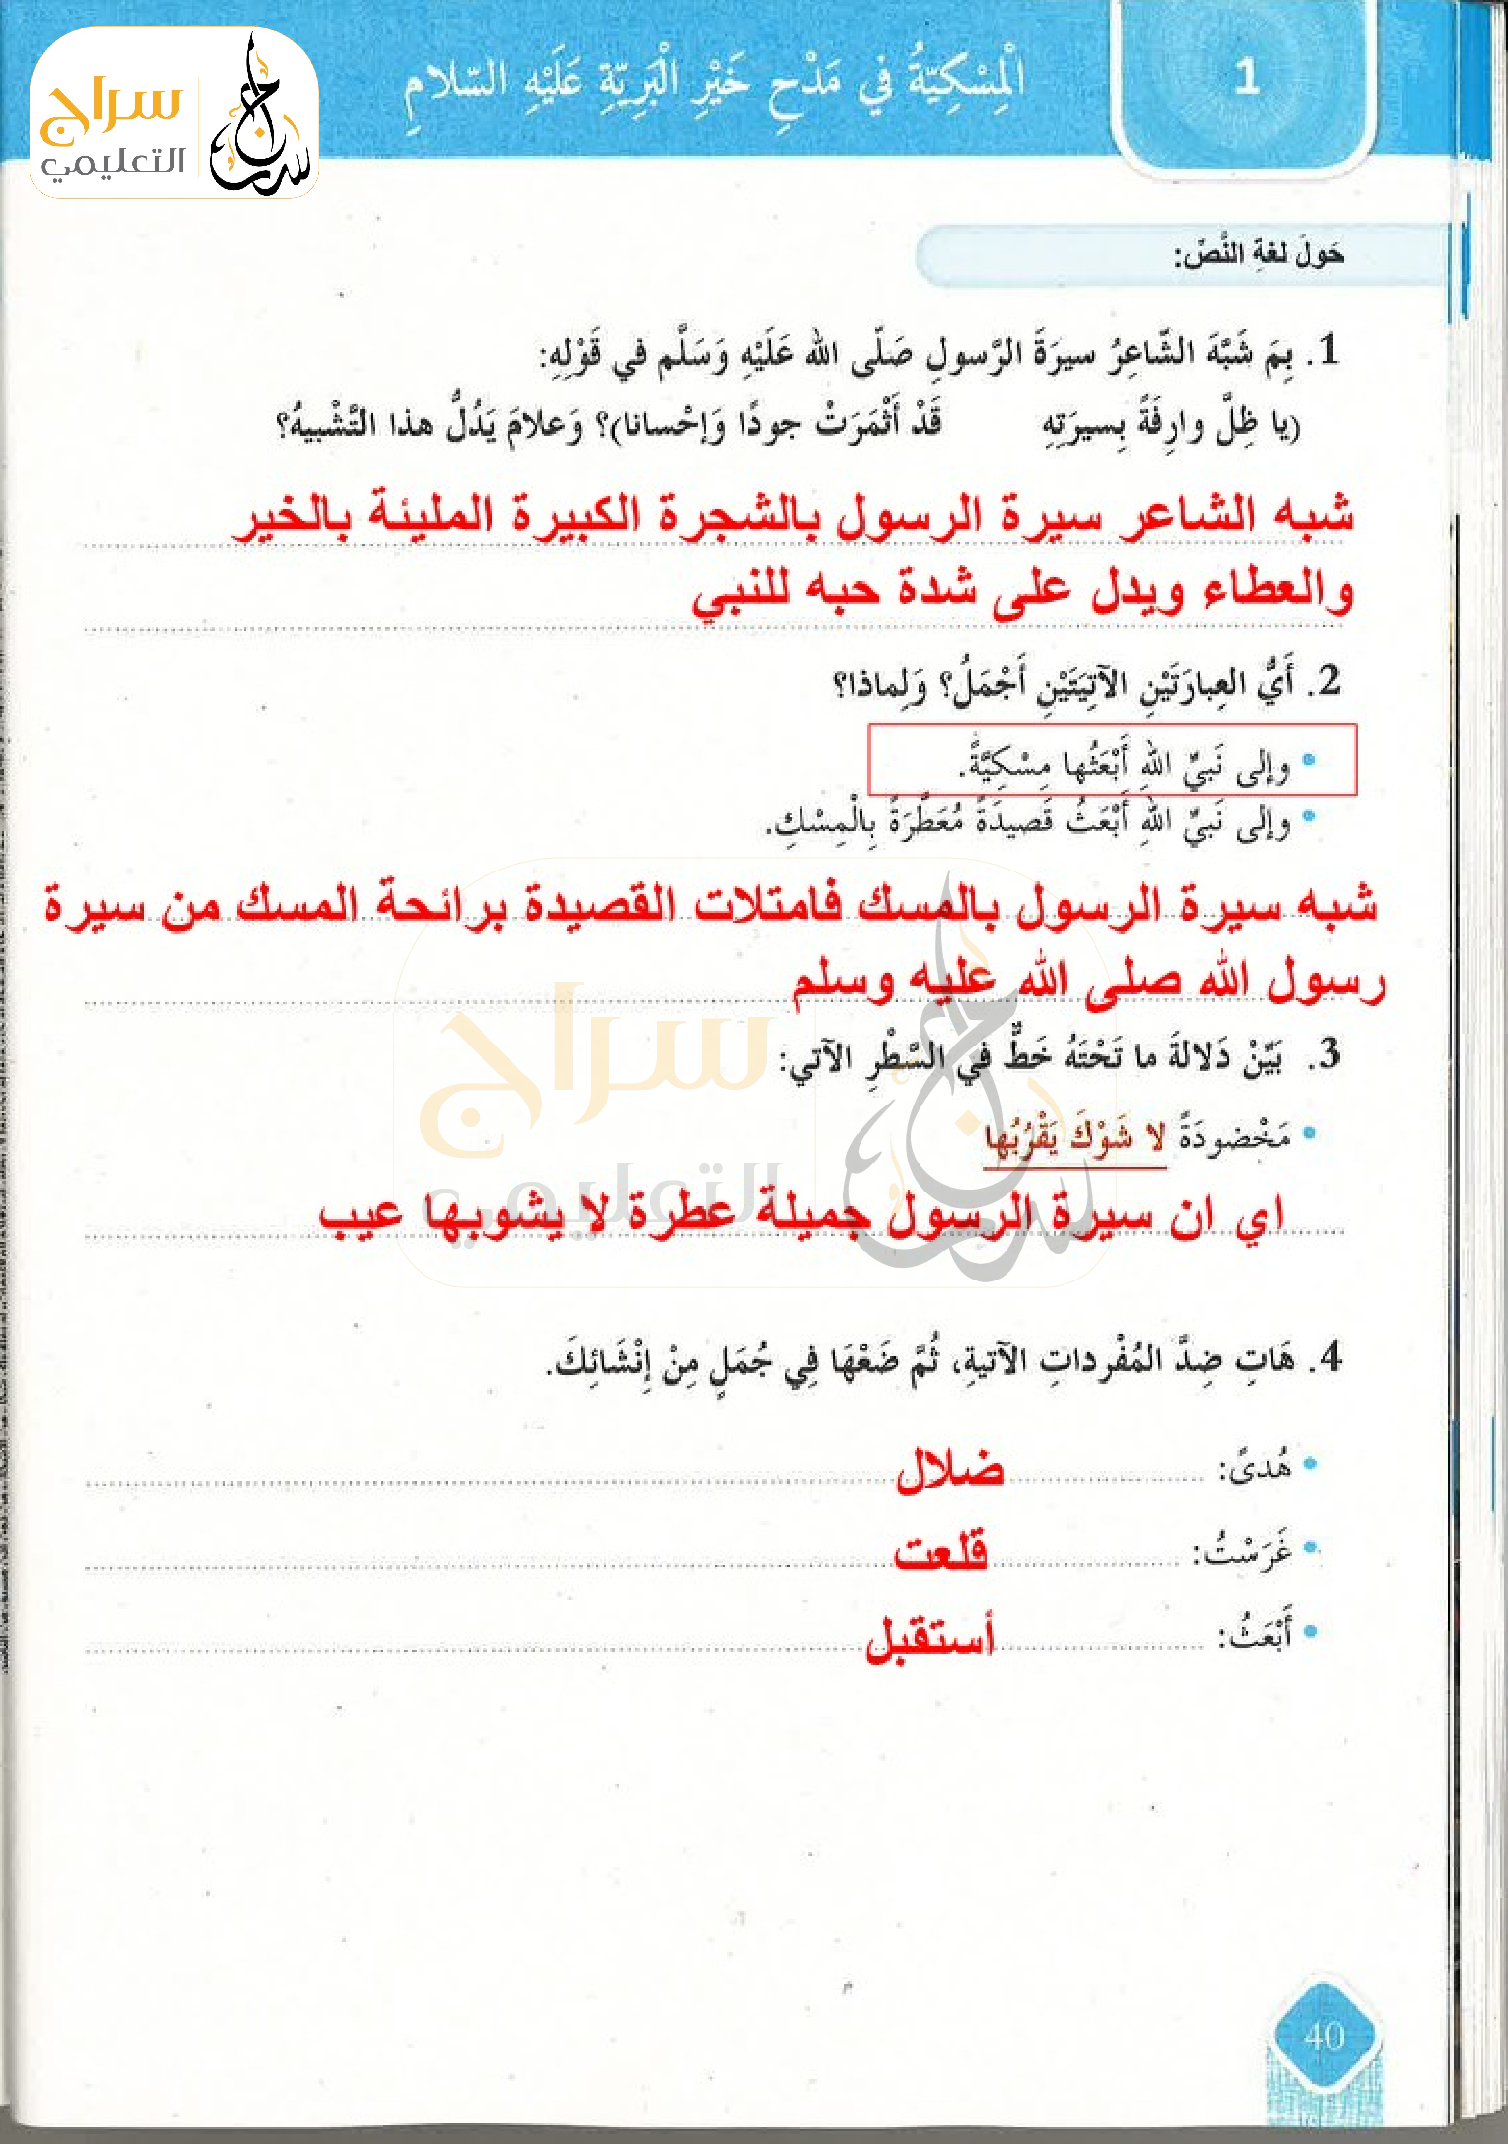 سراج
التعليمي
الْمِسْكِيّةُ في مَدْحِ خَيْرِ الْبَرِيّةِ عَلَيْهِ السّلامِ
1
حَولَ لغةِ النَّصّ:
1. بِمَ شَبَّهَ الشّاعِرُ سيرَةَ الرَّسولِ صَلّى الله عَلَيْهِ وَسَلَّم في قَوْلِهِ:
(يا ظِلَّ وارِفَةً بِسيرَتِهِ قَدْ أَثْمَرَتْ جودًا وَإحْسانا)؟ وَعلامَ يَدُلُّ هذا التَّشْبيهُ؟
شبه الشاعر سيرة الرسول بالشجرة الكبيرة المليئة بالخير
والعطاء ويدل على شدة حبه للنبي
2. أَيُّ العِبارَتَيْنِ الآتِيَتَيْنِ أَجْمَلُ؟ وَلِماذا؟
• وإلى نَبيِّ اللهِ أَبْعَثُها مِسْكِيَّةً.
• وإلى نَبيِّ اللهِ أَبْعَثُ قَصيدَةً مُعَطَّرَةً بِالْمِسْكِ.
شبه سيرة الرسول بالمسك فامتلات القصيدة برائحة المسك من سيرة
رسول الله صلى الله عليه وسلم
3. بَيّنْ دَلالةَ ما تَحْتَهُ خَطٌّ في السَّطْرِ الآتي:
• مَخْضودَةً لا شَوْكَ يَقْرُبُها
اي ان سيرة الرسول جميلة عطرة لا يشوبها عيب
4. هَاتِ ضِدَّ المُفْرداتِ الآتيةِ، ثُمَّ ضَعْهَا فِي جُمَلٍ مِنْ إنْشَائِكَ.
• هُدىً: ضلال
• غَرَسْتُ: قلعت
• أَبْعَثُ: أستقبل
40